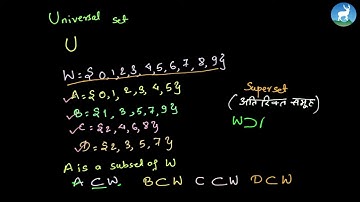 Universal set
U
W={0,1,2,3,4,5,6,7,8,9}
A={0,1,2,3,4,5}
B={1,3,5,7,9}
C={2,4,6,8}
D={2,3,5,7}
A is a subset of W
A⊂W B⊂W C⊂W D⊂W
Superset
(अतिरिक्त समूह)
W⊃